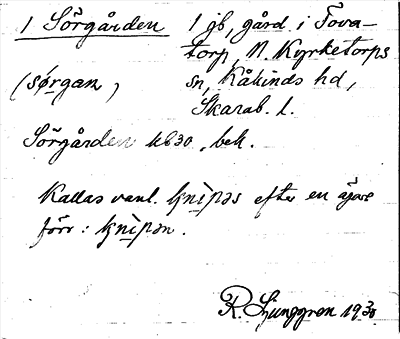 1 Sörgården 1 gb, gård i Tova-
torp, N. Kyrketorps
(sørgan, sn, Kåkinds hd,
Skarab. l.
Sörgården kb30, bek.
Kallas vanl. knìpəs efter en ägare
förr: knìpən.
R. Ljunggren 1930.